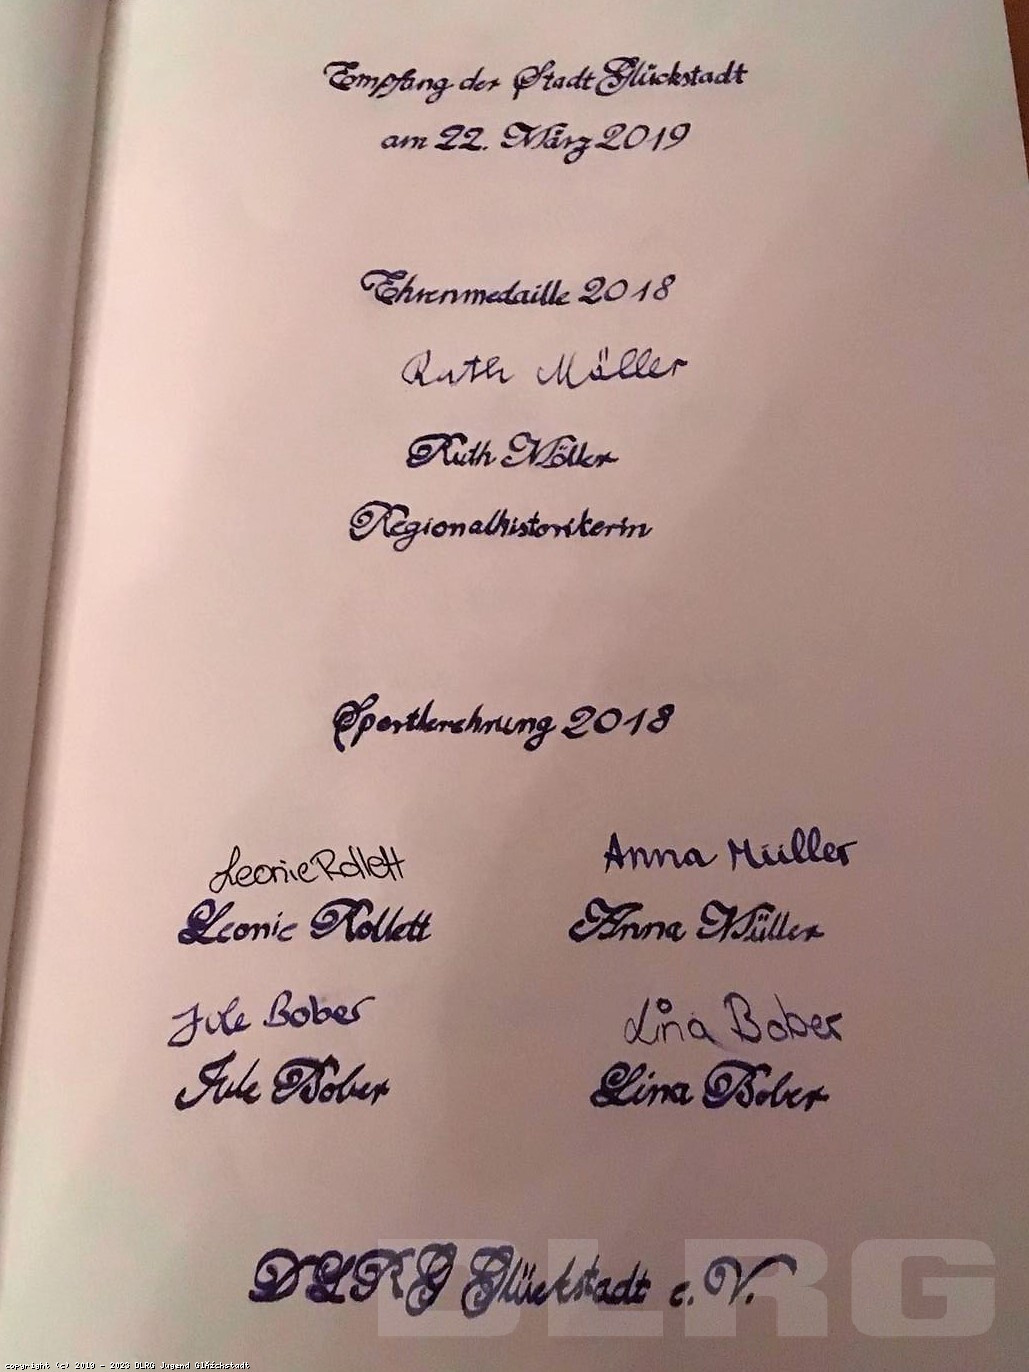 Empfang der Stadt Glückstadt
am 22. März 2019
Ehrenmedaille 2018
Ruth Möller
Ruth Möller
Regionalhistorikerin
Sportlerehrung 2018
Leonie Rollett
Anna Müller
Leonie Rollett
Anna Müller
Jule Bober
Lina Bober
Jule Bober
Lina Bober
DLRG Glückstadt e. V.
DLRG
copyright (c) 2010 - 2026 DLRG Jugend Glückstadt